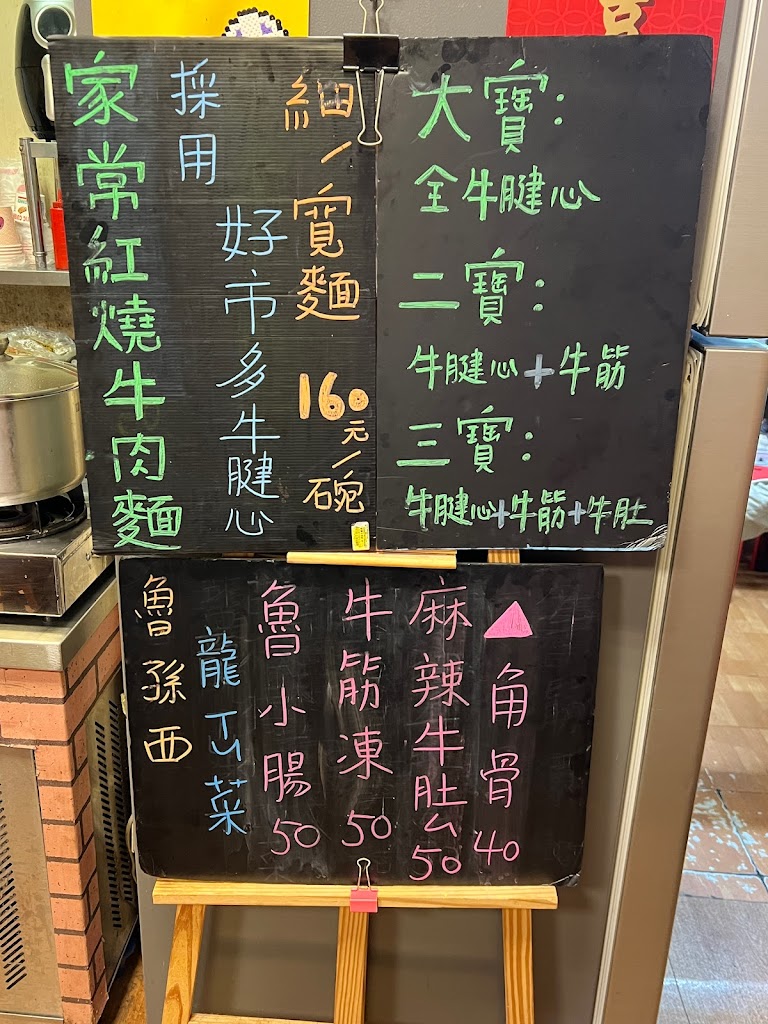 家常紅燒牛肉麵
採用
好市多牛腱心
細/寬麵 160元/碗
大寶:
全牛腱心
二寶:
牛腱心+牛筋
三寶:
牛腱心+牛筋+牛肚
魯孫西
龍ㄒㄩ菜
魯小腸 50
牛筋凍 50
麻辣牛肚ㄙ 50
▲角骨 40